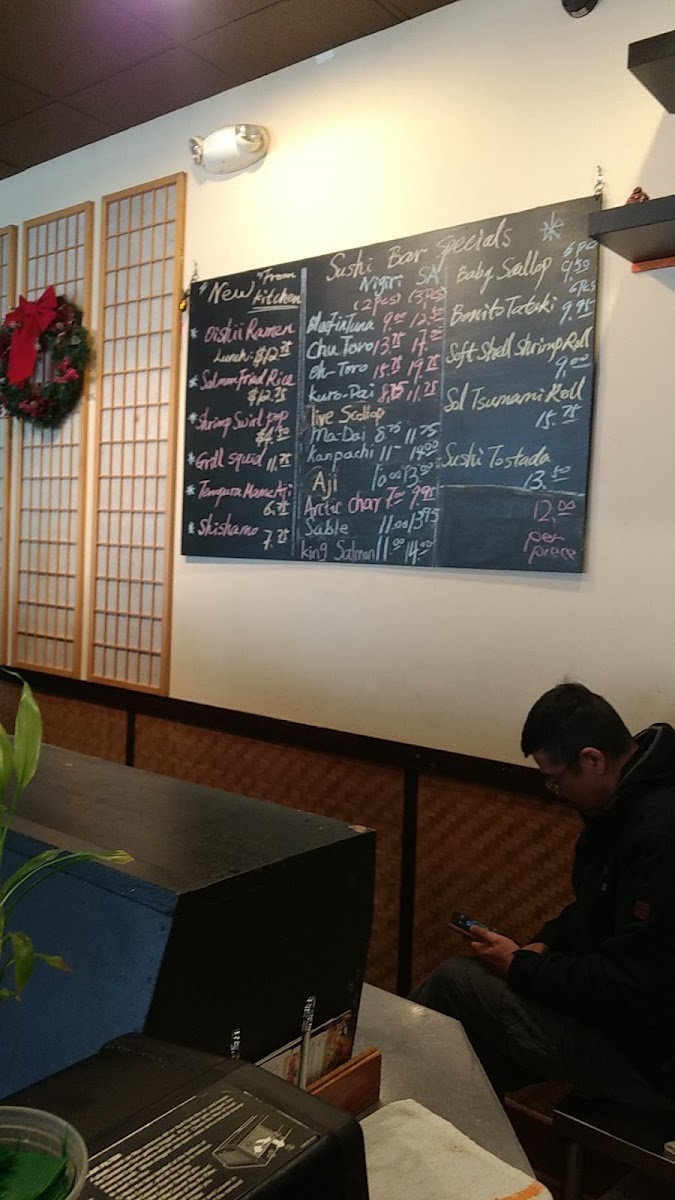 "New" From
Kitchen
* Oishii Ramen
Lunch: $12.75
* Salmon Fried Rice
$12.75
* Shrimp Swirl pop
$4.50
* Grill squid 11.75
* Tempura Mame Aji
6.75
* Shishamo
7.25
Sushi Bar Specials
Nigiri SA
(2pcs) (3pcs)
BlueFinTuna 9.00 12.50
Chu Toro 13.75 17.75
Oh-Toro 15.75 19.75
Kuro-Dai 8.75 11.75
live Scallop
Ma-Dai 8.75 11.75
Kanpachi 11- 14.00
Aji 10.00 13.00
Arctic char 7.00 9.95
Sable 11.00 13.95
king Salmon 11.00 14.00
6pcs
Baby Scallop 9.50
6pcs
Bonito Tataki 9.95
Soft Shell Shrimp Roll
9.00
Sal Tsumami Roll
15.75
Sushi Tostada
13.50
12.00
per
piece